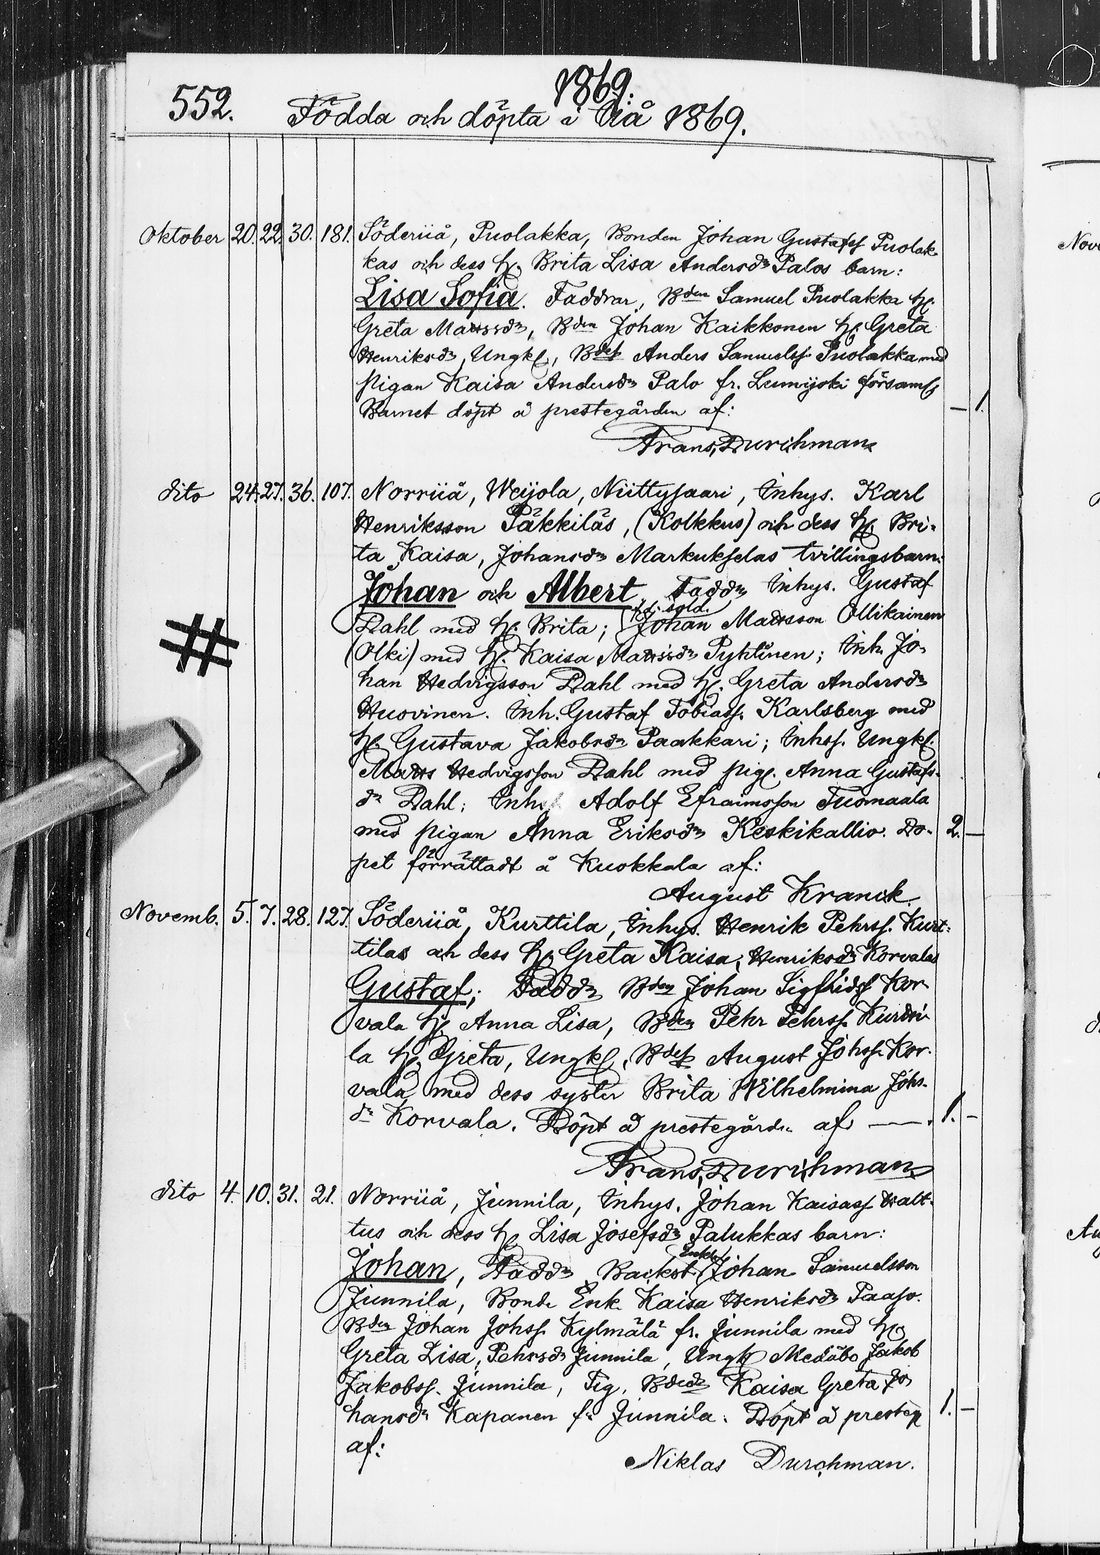 1869.
552. Födda och döpta i Uå 1869.
Oktober 20. 22. 30. 181. Söderuå, Puolakka, Bonden Johan Gustafss Puolak-
kas och dess h. Brita Lisa Andersdr Palos barn:
Lisa Sofia. Faddrar, Bden Samuel Puolakka h.
Greta Matsdr, Bden Johan Kaikkonen h. Greta
Henriksdr, Ungk, Bdes Anders Samuelss. Puolakka med
pigan Kaisa Andersdr Palo fr. Lumijoki församl
Barnet döpt å prestegården af: — 1.
Frans Durchman
dito 24. 27. 36. 107. Norruå, Weijola, Niittysaari, Inhys. Karl
Henriksson Päkkiläs, (Kolkkus) och dess h. Bri-
ta Kaisa, Johansdr Markukselas tvillingsbarn:
Johan och Albert, Faddr Inhys. Gustaf
Dahl med h. Brita; sold. Johan Matsson Ollikainen
(Olki) med h. Kaisa Matsdr Pyhtinen; Inh. Jo-
han Hedvigsson Dahl med h. Greta Andersdr
Huovinen. Inh. Gustaf Tobiass. Karlsberg med
h. Gustava Jakobsdr Paakkari; Inhs. Ungk.
Matts Hedvigsson Dahl med pig. Anna Gustafs-
dr Dahl; Inhs Adolf Efraimsson Tuomaala
med pigan Anna Eriksdr Keskikallio. Do- 2. —
pet förrättadt å Kuokkala af:
August Kranck
Novemb. 5. 7. 28. 127. Söderuå, Kurttila, Inhys. Henrik Pehrss. Kurt-
tilas och dess h. Greta Kaisa, Henriksdr Korvalas
Gustaf; Faddr Bden Johan Sigfridss Kor-
vala h. Anna Lisa, Bden Pehr Pehrss. Kurtti-
la h. Greta, Ungk, Bdes August Johss. Kor-
vala, med dess syster Brita Wilhelmina Johs-
dr Korvala. Döpt å prestegården af —. 1. —
Frans Durchman
dito 4. 10. 31. 21. Norruå, Junnila, Inhys. Johan Kaisass Halt-
tus och dess h. Lisa Josefsdr Palukkas barn:
Johan, Faddr Backst. Enkl. Johan Samuelsson
Junnila, Bonde Enk. Kaisa Henriksdr Paaso.
Bden Johan Johss. Kylmälä fr. Junnila med h.
Greta Lisa, Pehrsdr Junnila, Ungk Medåbo Jakob
Jakobss. Junnila, Pig. Bdedr Kaisa Greta Jo-
hansdr Kapanen fr Junnila. Döpt å presteg 1. —
af:
Niklas Durchman.